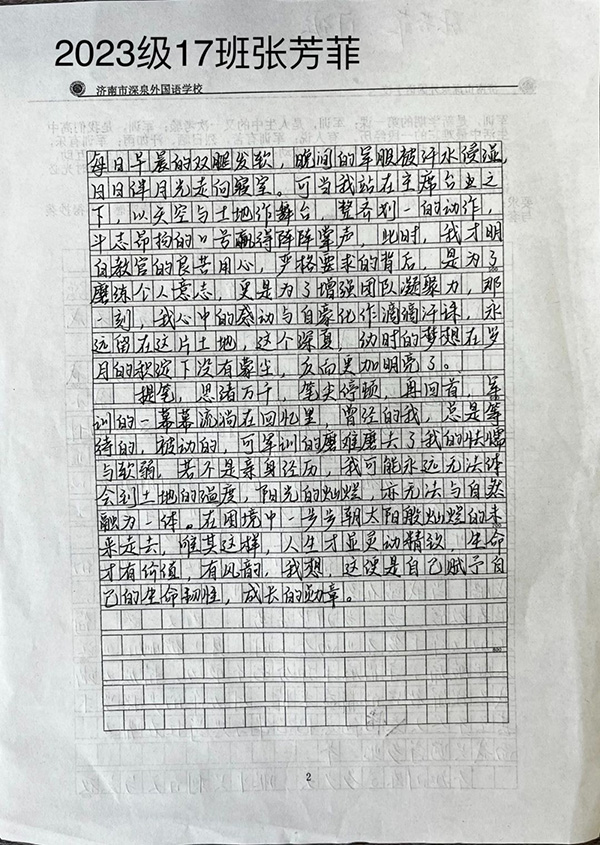 2023级17班张芳菲
济南市深泉外国语学校
每日早晨的双腿发软,晚间的军服被汗水浸湿,
日日伴月光走向寝室。可当我站在主席台上之
下,以天空与土地作舞台,整齐划一的动作,
斗志昂扬的口号赢得阵阵掌声,此时,我才明
白教官的良苦用心,严格要求的背后,是为了
磨练个人意志,更是为了增强团队凝聚力,那
一刻,我心中的感动与自豪化作滴滴汗珠,永
远留在这片土地,这个深夏,幼时的梦想在岁
月的积淀下没有蒙尘,反而更加明亮了。
提笔,思绪万千,笔尖停顿,再回首,军
训的一幕幕流淌在回忆里,曾经的我,总是等
待的,被动的,可军训的磨难磨去了我的怯懦
与软弱,若不是亲身经历,我可能永远无法体
会到土地的温度,阳光的灿烂,亦无法与自然
融为一体。在困境中一步步朝太阳般灿烂的未
来走去,唯其这样,人生才显更动精致,生命
才有价值,有风韵,我想,这便是自己赋予自
己的生命韧性,成长的勋章。
2